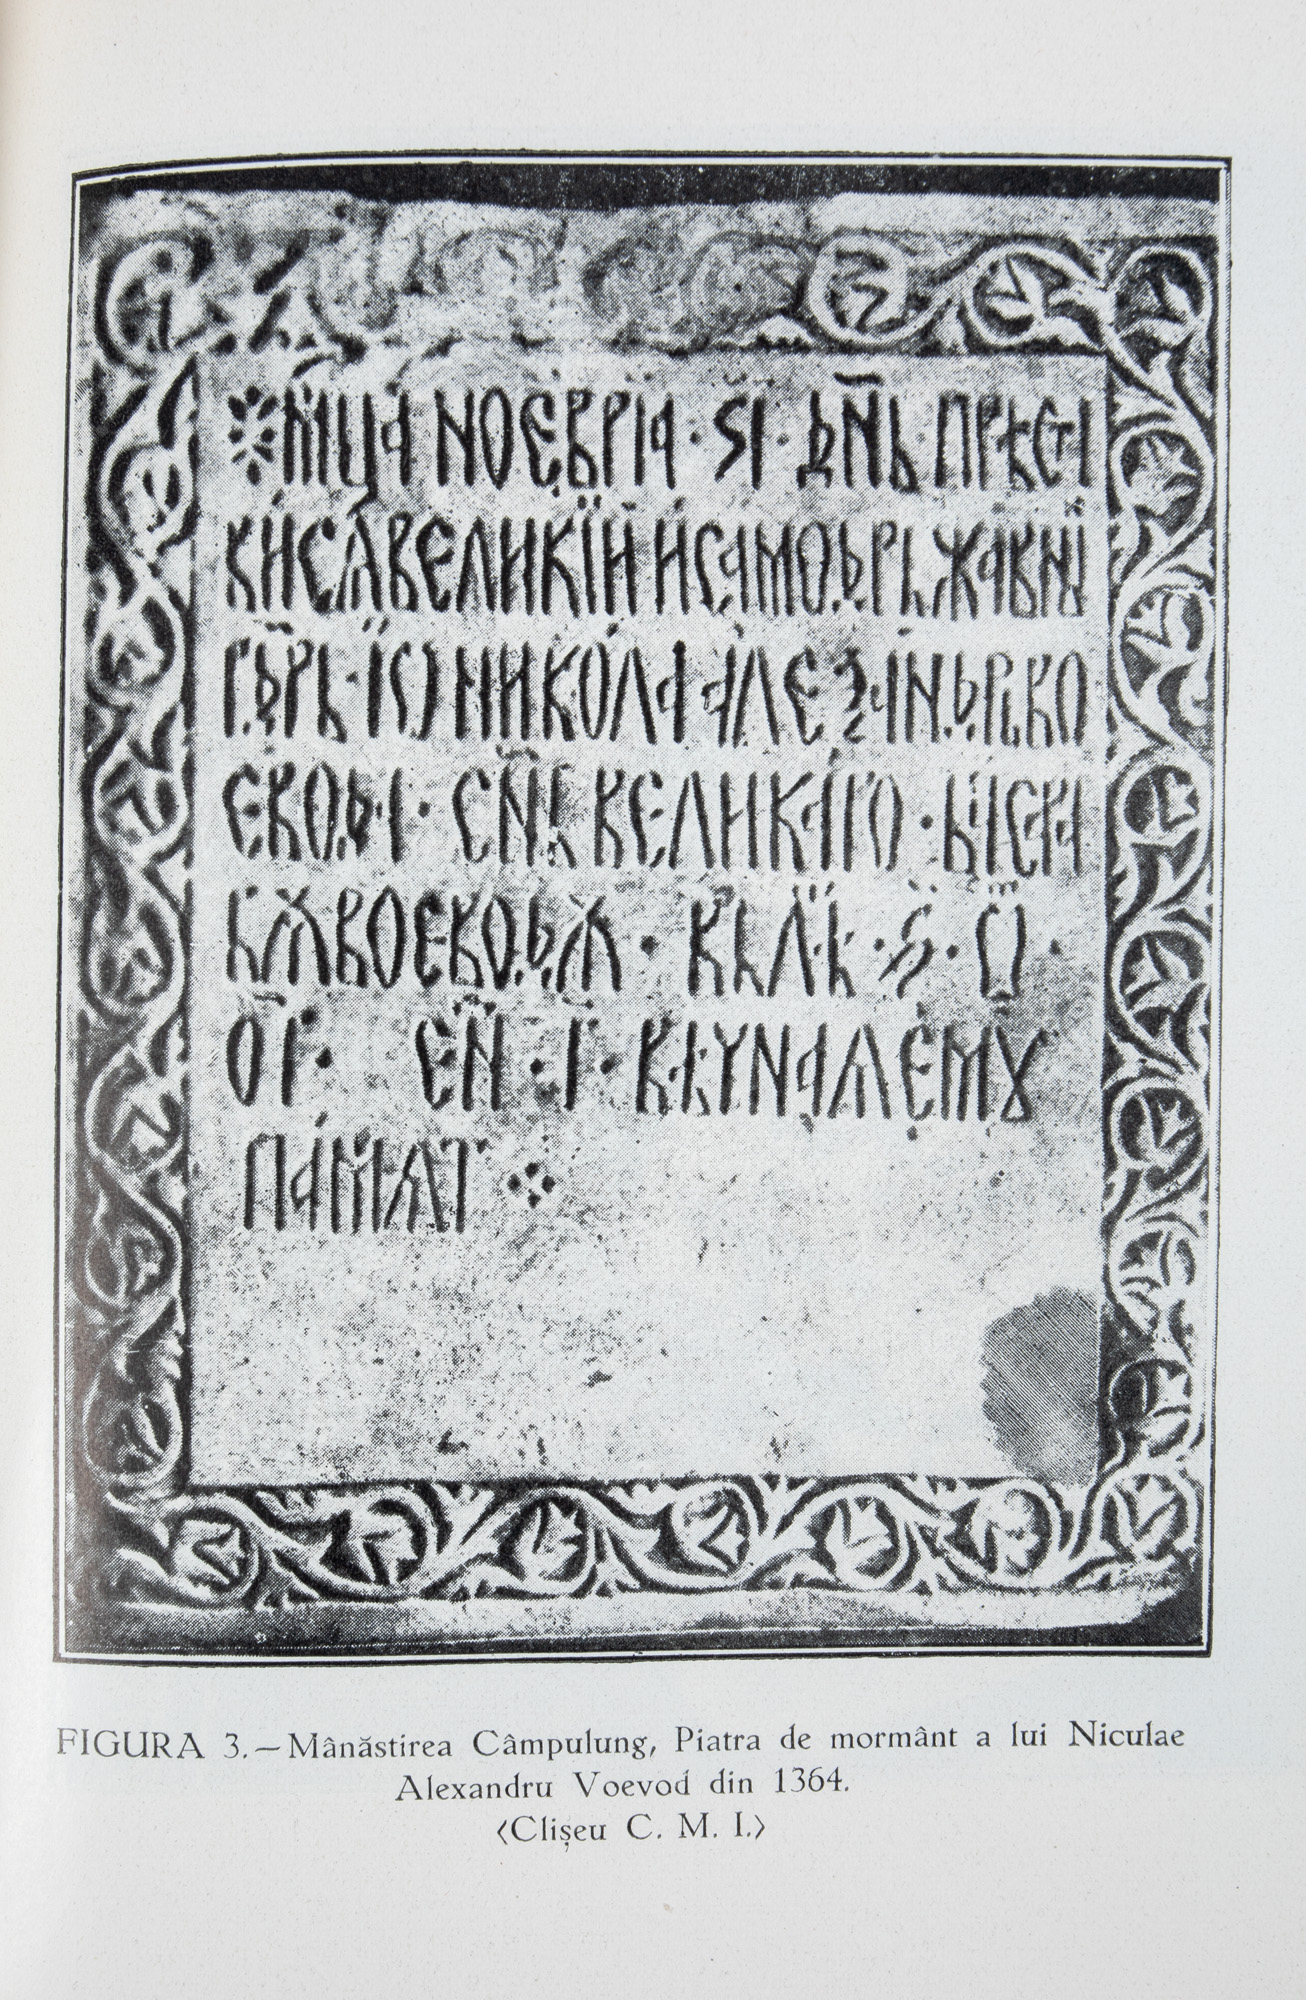 мц҃а ноеврїа · ѕ҃ı · дн҃ь прѣстı
ви сѧ великїи и самодрьжавнı
г҃рь · іѡ никола алеѯандрь во
евода · сн҃ь великаго · бысара
бѫ воеводѫ · въ лѣ · ѕ҃ · ѿ ·
о҃г · ен · і · вѣчнаѧ емꙋ
памѧт
FIGURA 3.—Mânăstirea Câmpulung, Piatra de mormânt a lui Niculae
Alexandru Voevod din 1364.
<Clişeu C. M. I.>